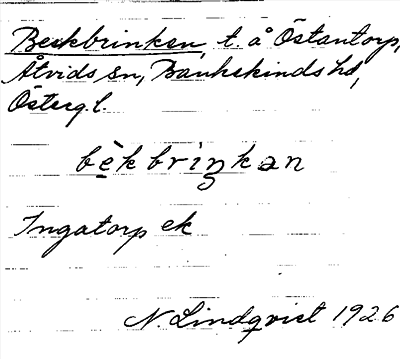 Beckbrinken, t. å Östantorp,
Åtvids sn, Bankekinds hd,
Österg.l.
bè̠kbrìŋkən
Ingatorp ek
N. Lindqvist 1926